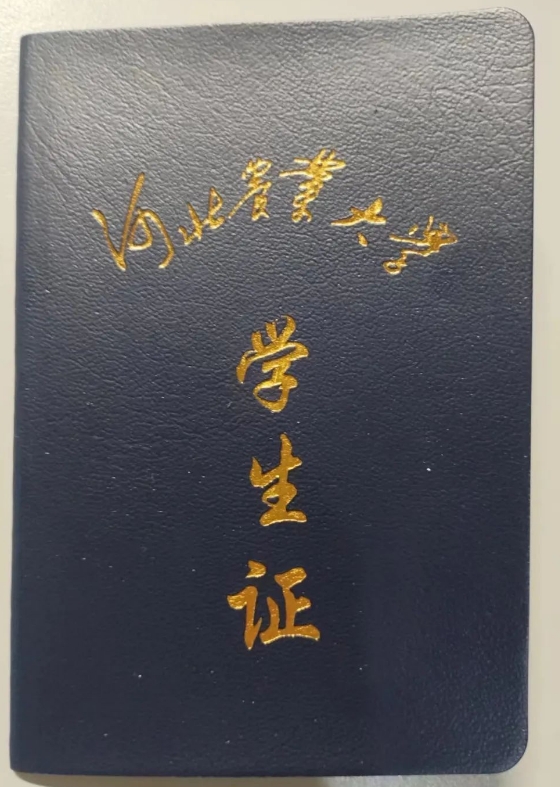 河北農業大學
学
生
证